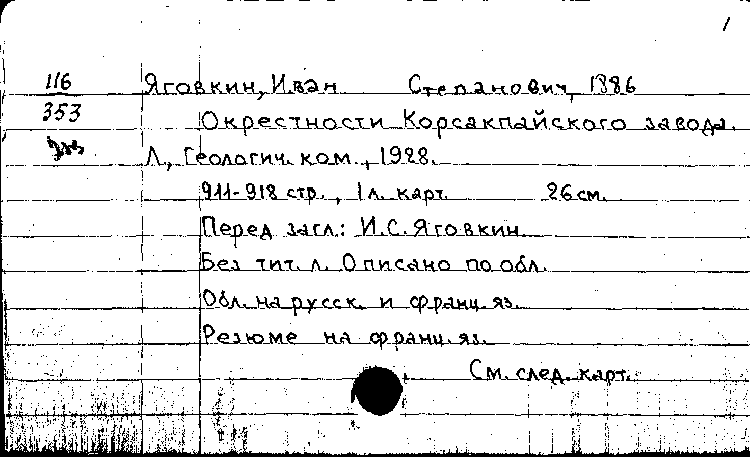 1
116
353
Яговкин, Иван Степанович, 1886
Окрестности Корсакпайского завода.
Л., Геологич. ком., 1928.
911-918 стр., 1 л. карт. 26 см.
Перед загл.: И.С. Яговкин.
Без тит. л. Описано по обл.
Обл. на русск. и франц. яз.
Резюме на франц. яз.
См. след. карт.